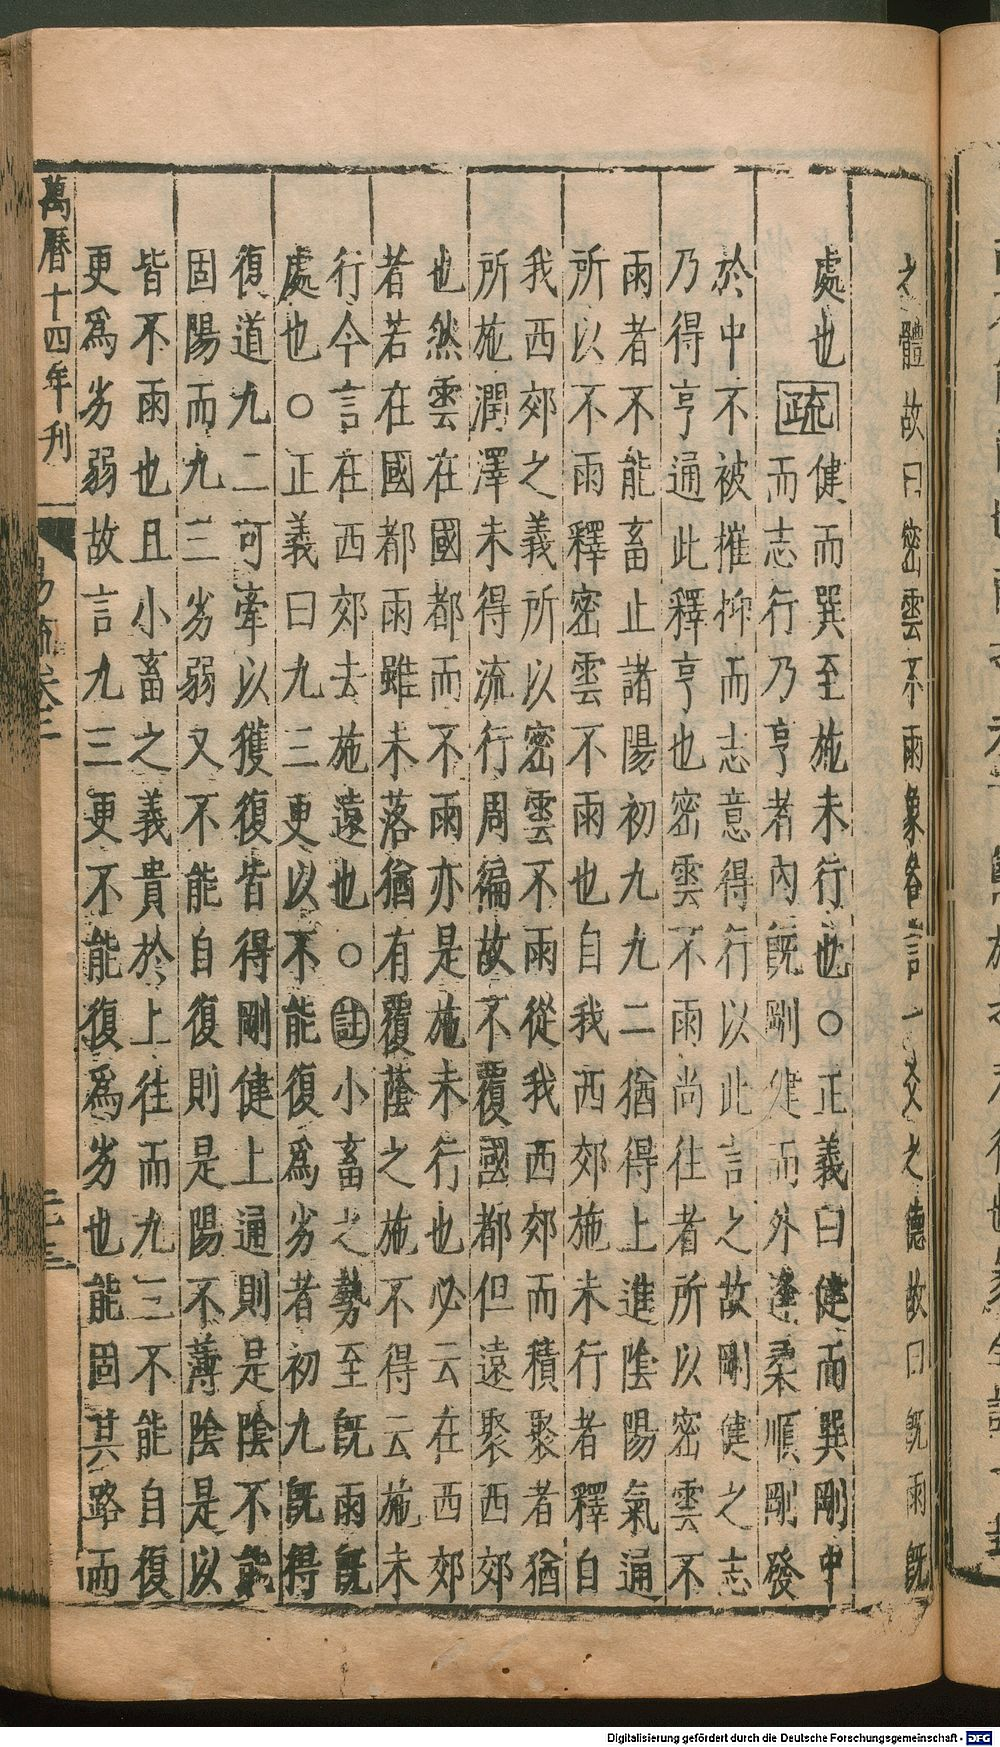 之體故曰密雲不雨象各言一爻之德故曰既雨既
處也
疏
健而巽至施未行也○正義曰健而巽剛中
而志行乃亨者內既剛健而外逢柔順剛發
於中不被摧抑而志意得行以此言之故剛健之志
乃得亨通此釋亨也密雲不雨尚往者所以密雲不
雨者不能畜止諸陽初九九二猶得上進陰陽氣通
所以不雨釋密雲不雨也自我西郊施未行者釋自
我西郊之義所以密雲不雨從我西郊而積聚者猶
所施潤澤未得流行周徧故不覆國都但遠聚西郊
也然雲在國都而不雨亦是施未行也必云在西郊
者若在國都雨雖未落猶有覆蔭之施不得云施未
行今言在西郊去施遠也○註小畜之勢至既雨既
處也○正義曰九三更以不能復爲劣者初九既得
復道九二可牽以獲復皆得剛健上通則是陰不能
固陽而九三劣弱又不能自復則是陽不薄陰是以
皆不雨也且小畜之義貴於上往而九三不能自復
更爲劣弱故言九三更不能復爲劣也能固其路而
萬曆十四年刊
易疏卷二
二十三
Digitalisierung gefördert durch die Deutsche Forschungsgemeinschaft - DFG